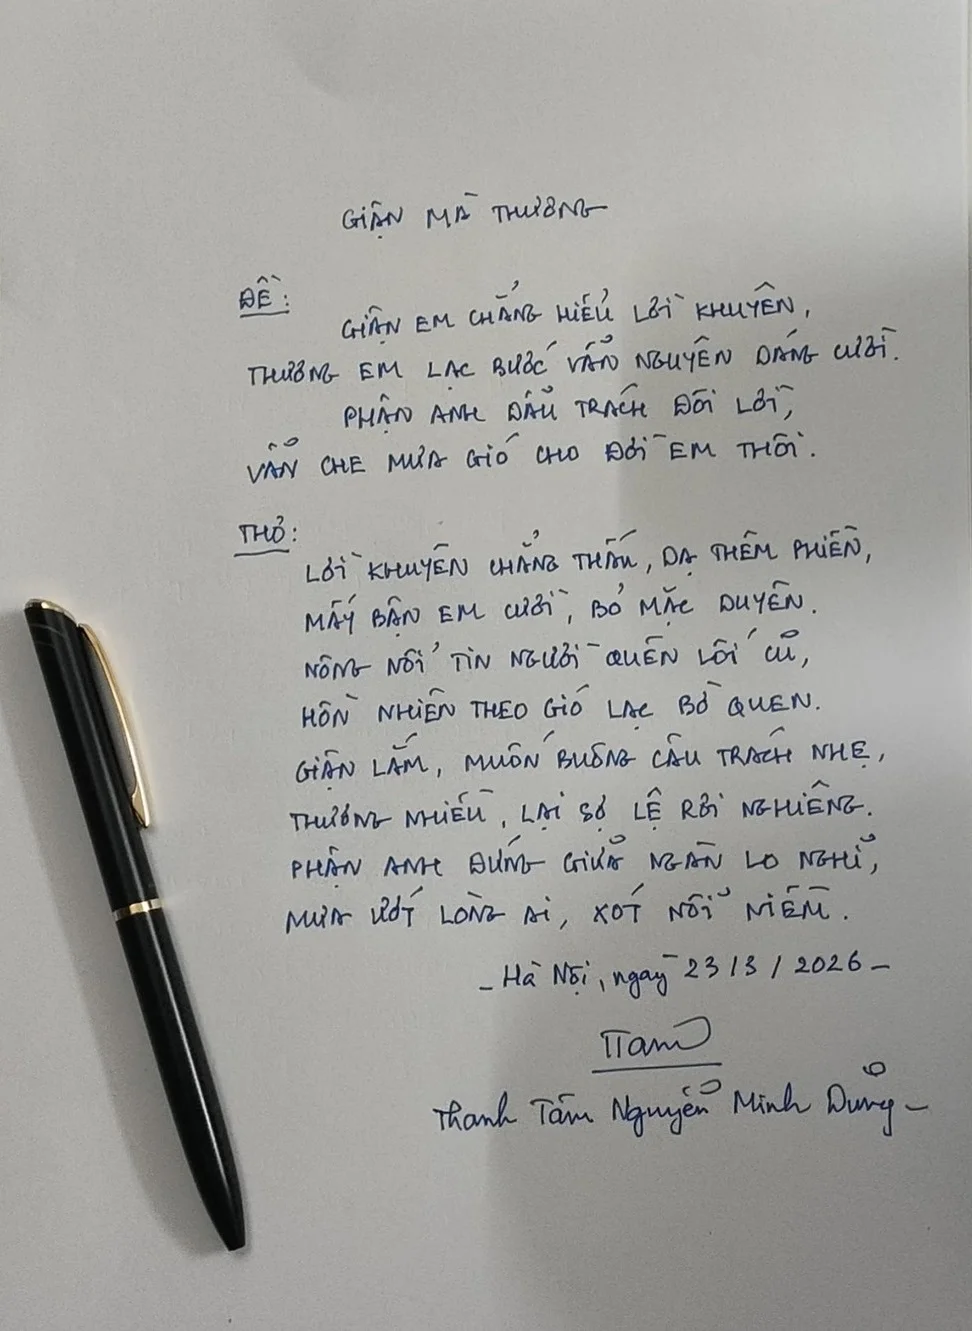 GIẬN MÀ THƯƠNG
ĐỀ:
GIẬN EM CHẲNG HIỂU LỜI KHUYÊN,
THƯƠNG EM LẠC BƯỚC VẪN NGUYÊN DÁNG CƯỜI.
PHẬN ANH DẪU TRÁCH ĐÔI LỜI,
VẪN CHE MƯA GIÓ CHO ĐỜI EM THÔI.
THƠ:
LỜI KHUYÊN CHẲNG THẤU, DẠ THÊM PHIỀN,
MẤY BẬN EM CƯỜI, BỎ MẶC DUYÊN.
NÔNG NỔI TIN NGƯỜI QUÊN LỐI CŨ,
HỒN NHIÊN THEO GIÓ LẠC BỜ QUEN.
GIẬN LẮM, MUỐN BUÔNG CÂU TRÁCH NHẸ,
THƯƠNG NHIỀU, LẠI SỢ LỆ RƠI NGHIÊNG.
PHẬN ANH ĐỨNG GIỮA NGÀN LO NGHĨ,
MƯA ƯỚT LÒNG AI, XÓT NỖI NIỀM.
- Hà Nội, ngày 23/3/2026 -
Thanh Tâm Nguyễn Minh Dũng -